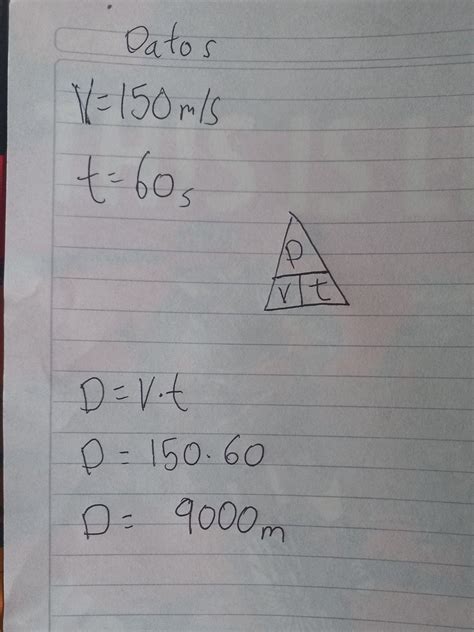 Datos
V=150m/s
t=60s
D
V t
D=V·t
D=150·60
D= 9000m